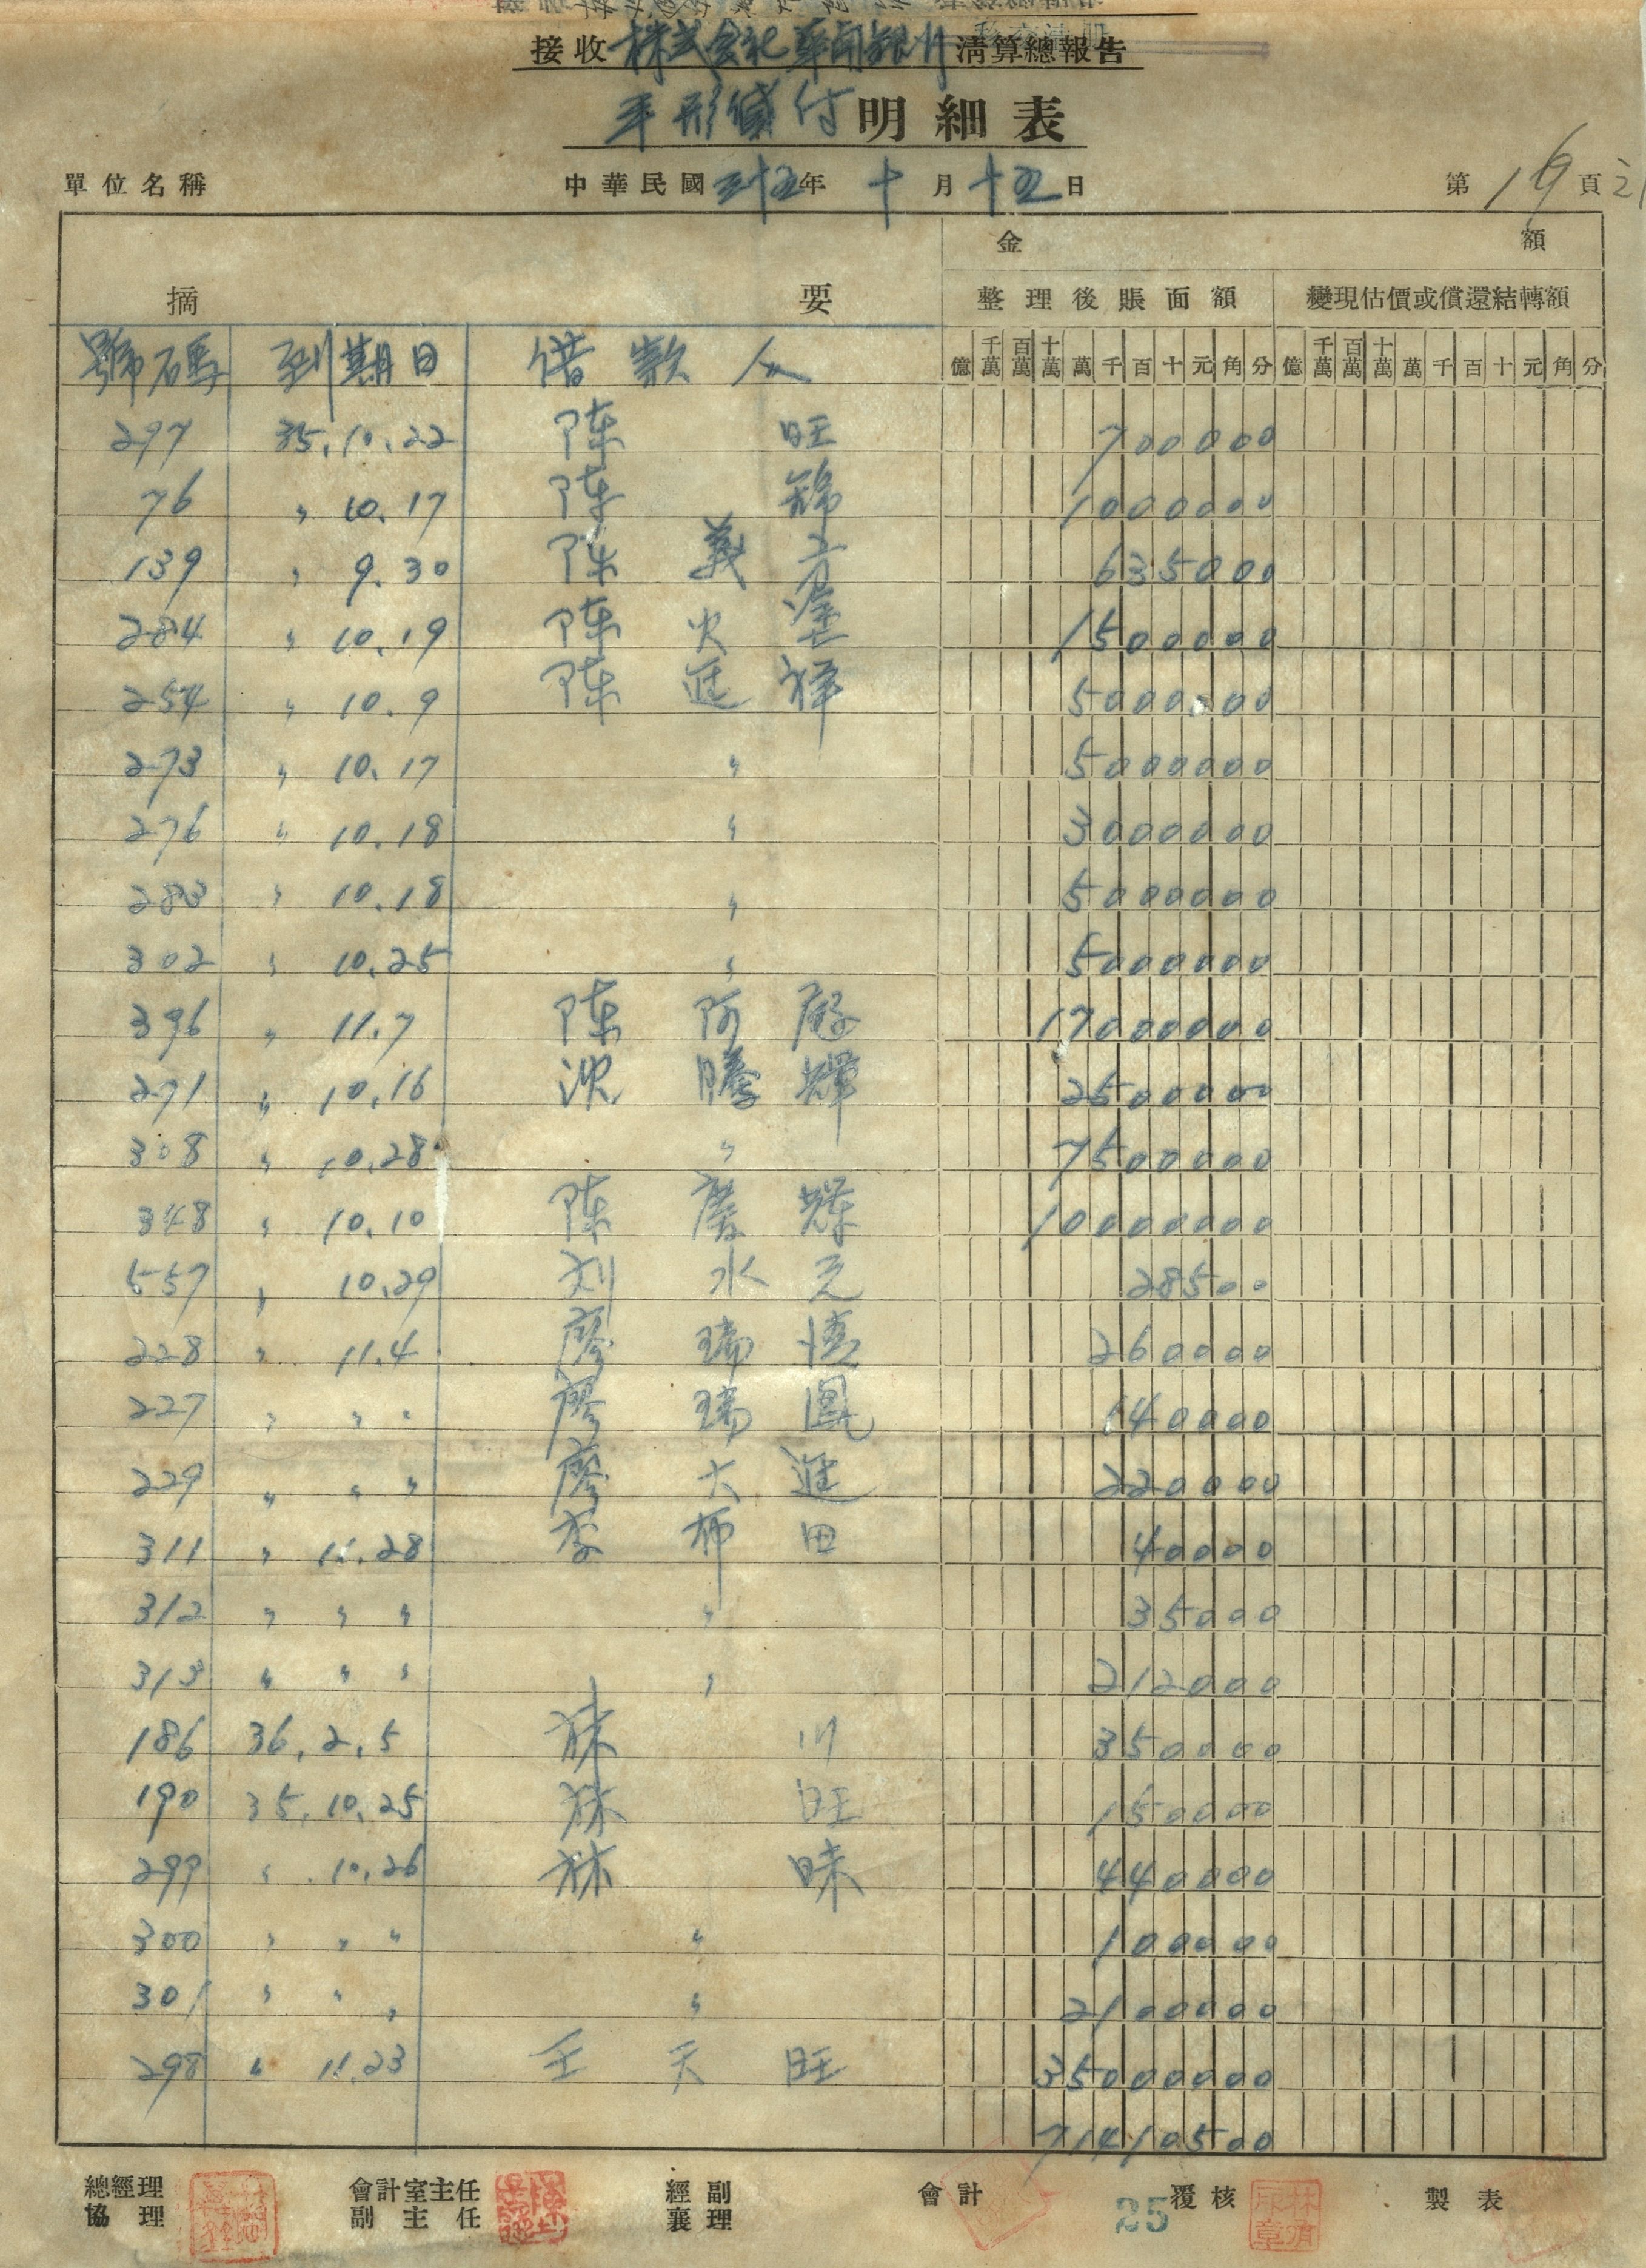 接收株式会社華南銀行清算總報告
手形貸付明細表
單位名稱 中華民國三十五年十月十五日 第19頁
金額
摘要 整理後賬面額 變現估價或償還結轉額
號碼 到期日 借款人 億 千萬 百萬 十萬 萬 千 百 十 元 角 分 億 千萬 百萬 十萬 萬 千 百 十 元 角 分
297 35.10.22 陈旺 700000
76 〃 10.17 陈錦 1000000
139 〃 9.30 陈義方 635000
284 〃 10.19 陈火塗 1500000
254 〃 10.9 陈廷祥 5000000
273 〃 10.17 〃 5000000
276 〃 10.18 〃 3000000
283 〃 10.18 〃 5000000
302 〃 10.25 〃 5000000
396 〃 11.7 陈阿 17000000
271 〃 10.16 沈騰輝 2500000
308 〃 10.28 〃 7500000
348 〃 10.10 陈慶輝 10000000
557 〃 10.29 刘水元 28500
228 〃 11.4 廖瑞 260000
227 〃 〃 〃 廖瑞鳳 140000
229 〃 〃 〃 廖大進 220000
311 〃 11.28 李布田 40000
312 〃 〃 〃 〃 35000
313 〃 〃 〃 〃 212000
186 36.2.5 林川 350000
190 35.10.25 林旺 150000
299 〃 10.26 林味 440000
300 〃 〃 〃 〃 100000
301 〃 〃 〃 〃 2100000
298 〃 11.23 王天旺 3500000
71410500
總經理 會計室主任 經副 會計 覆核 製表
協理 副主任 襄理
25